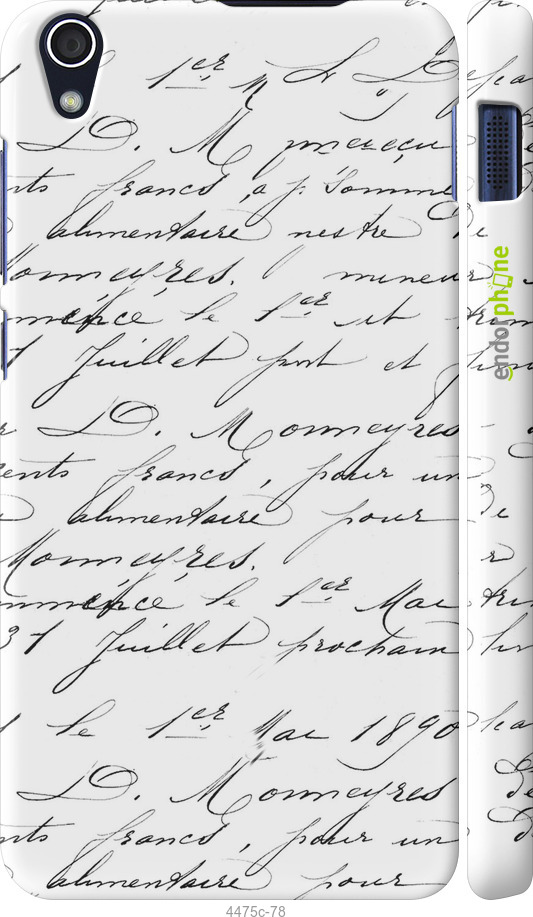 1er
D. M
nts francs, a
alimentaire nestre De
Monneyres. mineur
mmence le 1er et trim
31 Juillet port et
D. Monneyres
cents francs, pour un
alimentaire pour De
Monneyres.
mmence le 1er Mai tri
31 Juillet prochain
le 1er Mai 1890
D. Monneyres
nts francs, pour un
alimentaire pour
endorphone
4475c-78